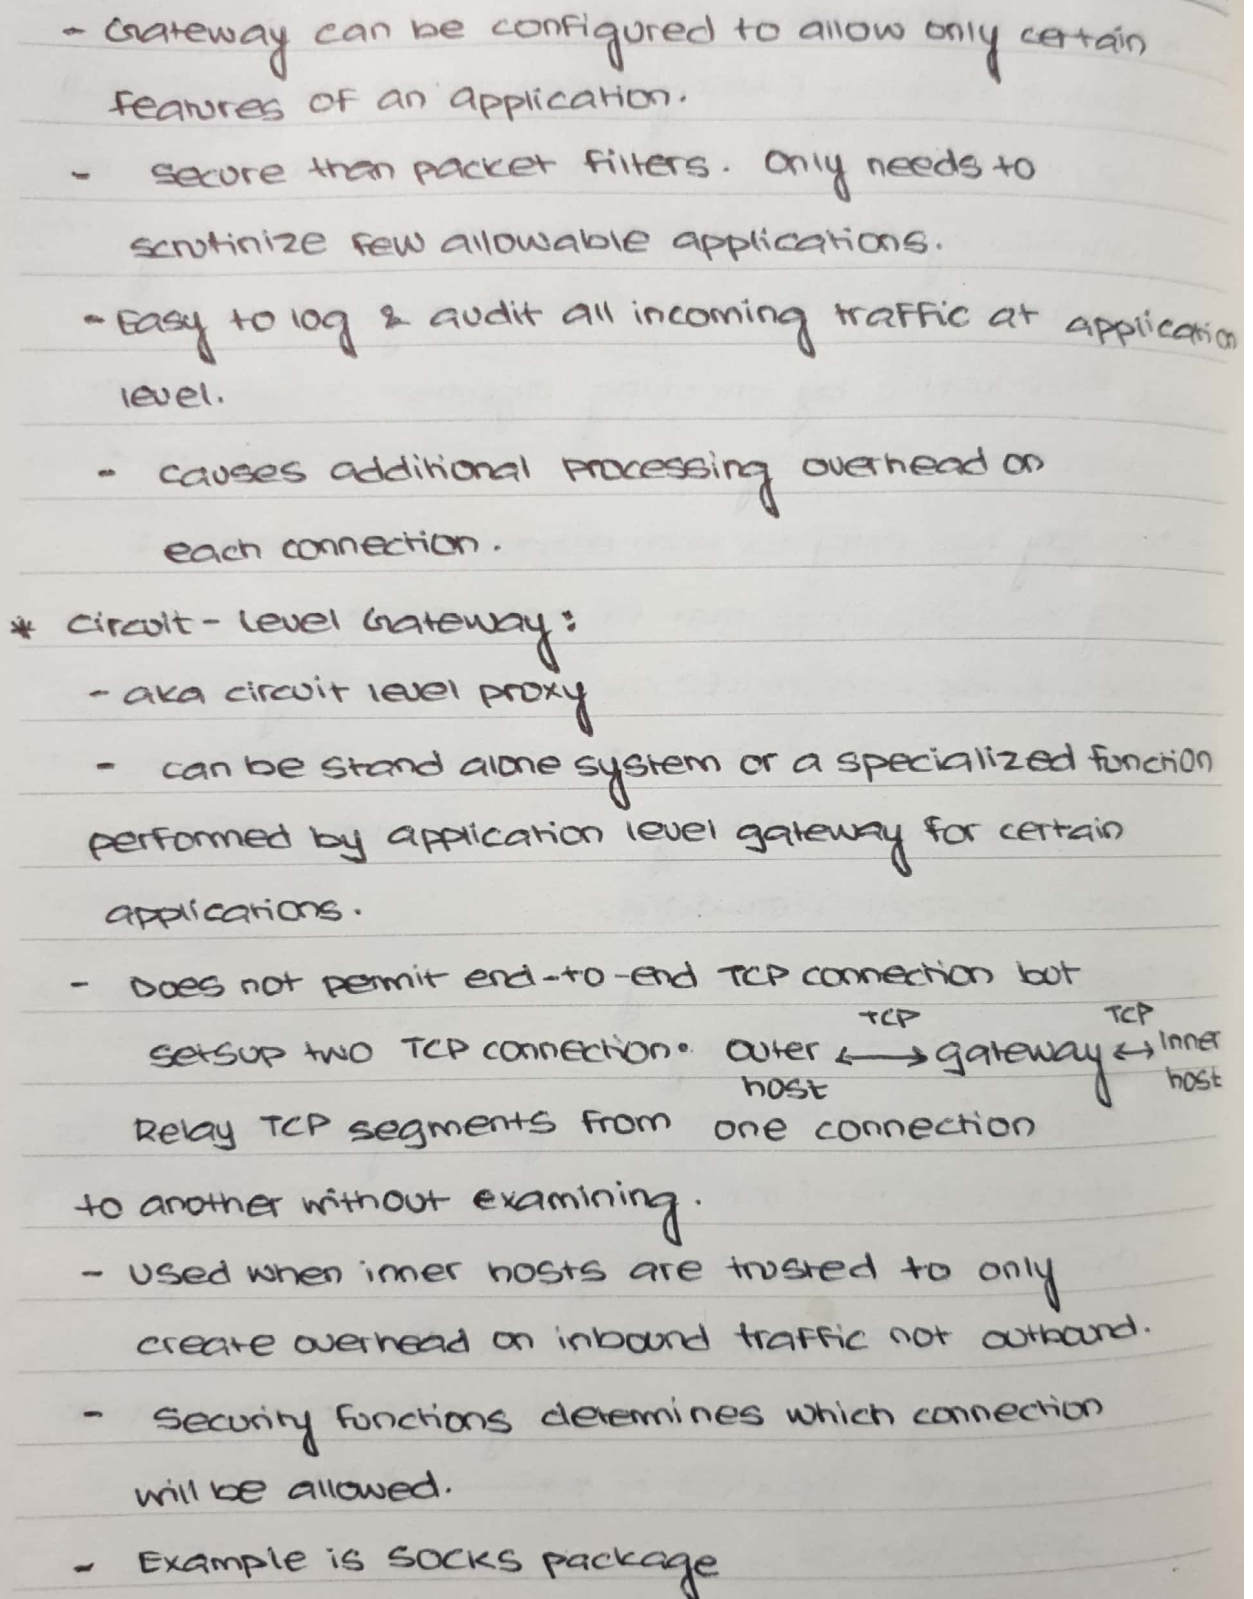 - Gateway can be configured to allow only certain
features of an application.
- secure than packet filters. Only needs to
scrutinize few allowable applications.
- Easy to log & audit all incoming traffic at application
level.
- causes additional processing overhead on
each connection.
* Circuit-Level Gateway:
- aka circuit level proxy
- can be stand alone system or a specialized function
performed by application level gateway for certain
applications.
- Does not permit end-to-end TCP connection but
TCP TCP
setsup two TCP connection. outer ⟷ gateway ↔ inner
host host
Relay TCP segments from one connection
to another without examining.
- used when inner hosts are trusted to only
create overhead on inbound traffic not outbound.
- Security functions determines which connection
will be allowed.
- Example is SOCKS package